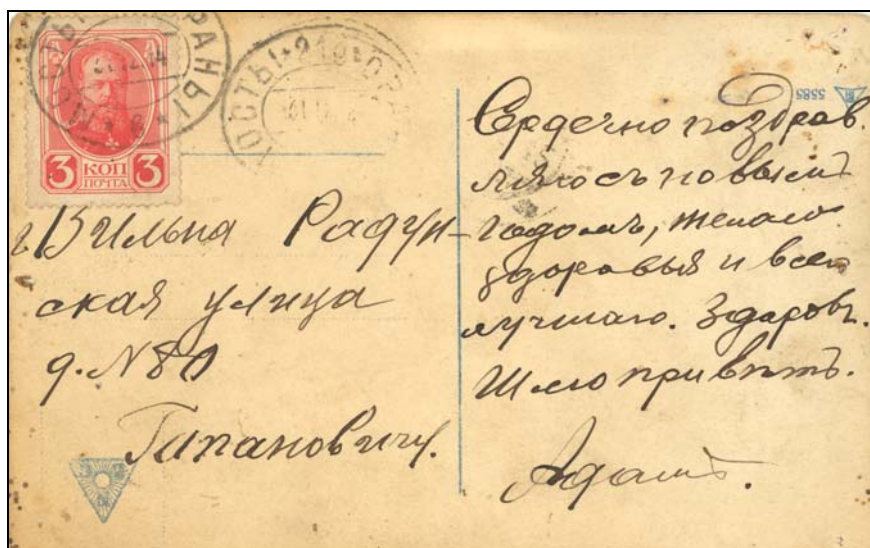 3 КОП ПОЧТА 3
г. Вильна Радун-
ская улица
д. № 80
Гапановичу.
5585
Сердечно поздрав
ляю съ новымъ
годомъ, желаю
здоровья и всего
лучшаго. Здоровъ.
Шлю привѣтъ.
Адамъ.